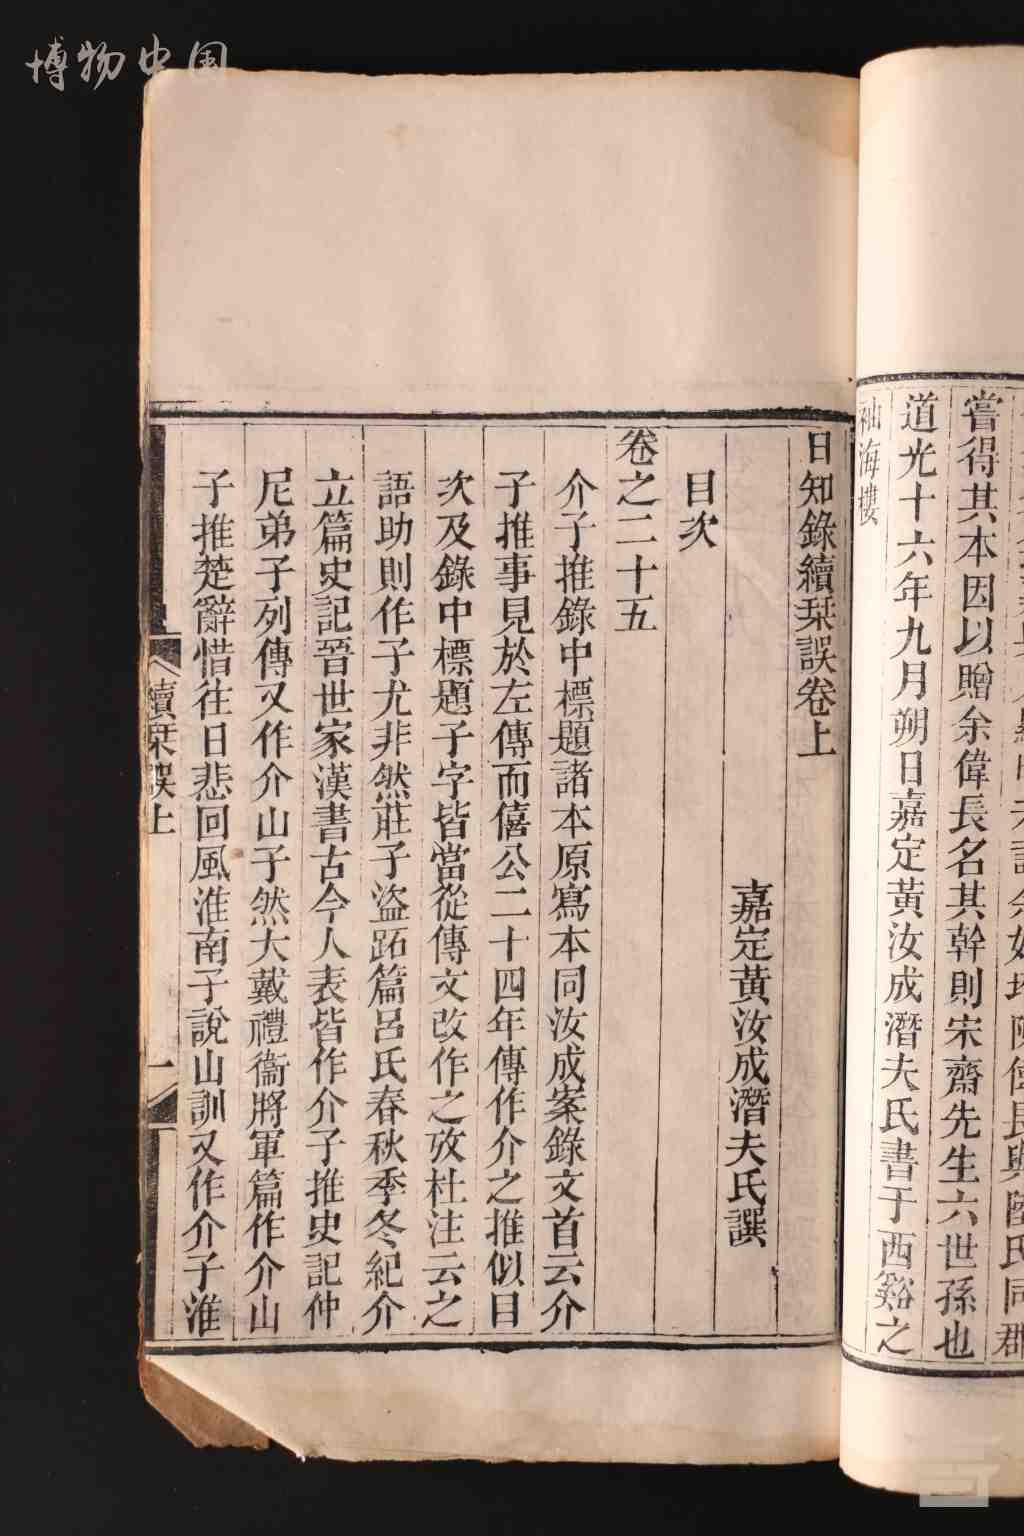 博物中国
嘗得其本因以贈余偉長名其幹則宋齋先生六世孫也
道光十六年九月朔日嘉定黃汝成潛夫氏書于西谿之
袖海樓
日知錄續栞誤卷上
嘉定黃汝成潛夫氏譔
目次
卷之二十五
介子推錄中標題諸本原寫本同汝成案錄文首云介
子推事見於左傳而僖公二十四年傳作介之推似目
次及錄中標題子字皆當從傳文改作之攷杜注云之
語助則作子尤非然莊子盜跖篇呂氏春秋季冬紀介
立篇史記晉世家漢書古今人表皆作介子推史記仲
尼弟子列傳又作介山子然大戴禮衞將軍篇作介山
子推楚辭惜往日悲回風淮南子說山訓又作介子淮
續栞誤上
一